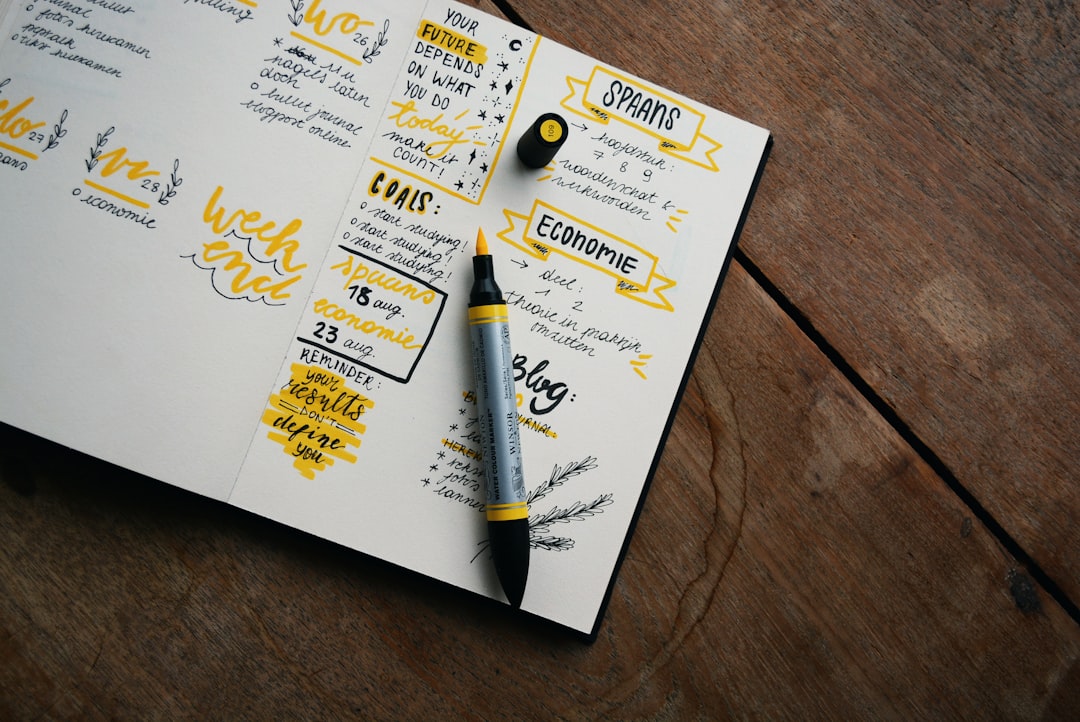 bullet
journal
o foto's herexamen
o tiks herexamen
Wo 26
* nagels laten
doen
o bullet journal
blogpost online
do 27
vr 28
o economie
Week
end
YOUR
FUTURE
DEPENDS
ON WHAT
YOU DO
today
make it
COUNT!
GOALS:
o start studying!
o start studying!
o start studying!
spaans
18 aug.
economie
23 aug.
REMINDER:
your
results
DON'T
define
you
SPAANS
→ hoofdstuk:
7 8 9
woordenschat &
werkwoorden
ECONOMIE
→ deel:
1 2
theorie in praktijk
omzetten
Blog:
109
WINSOR
WATER COLOUR MARKER